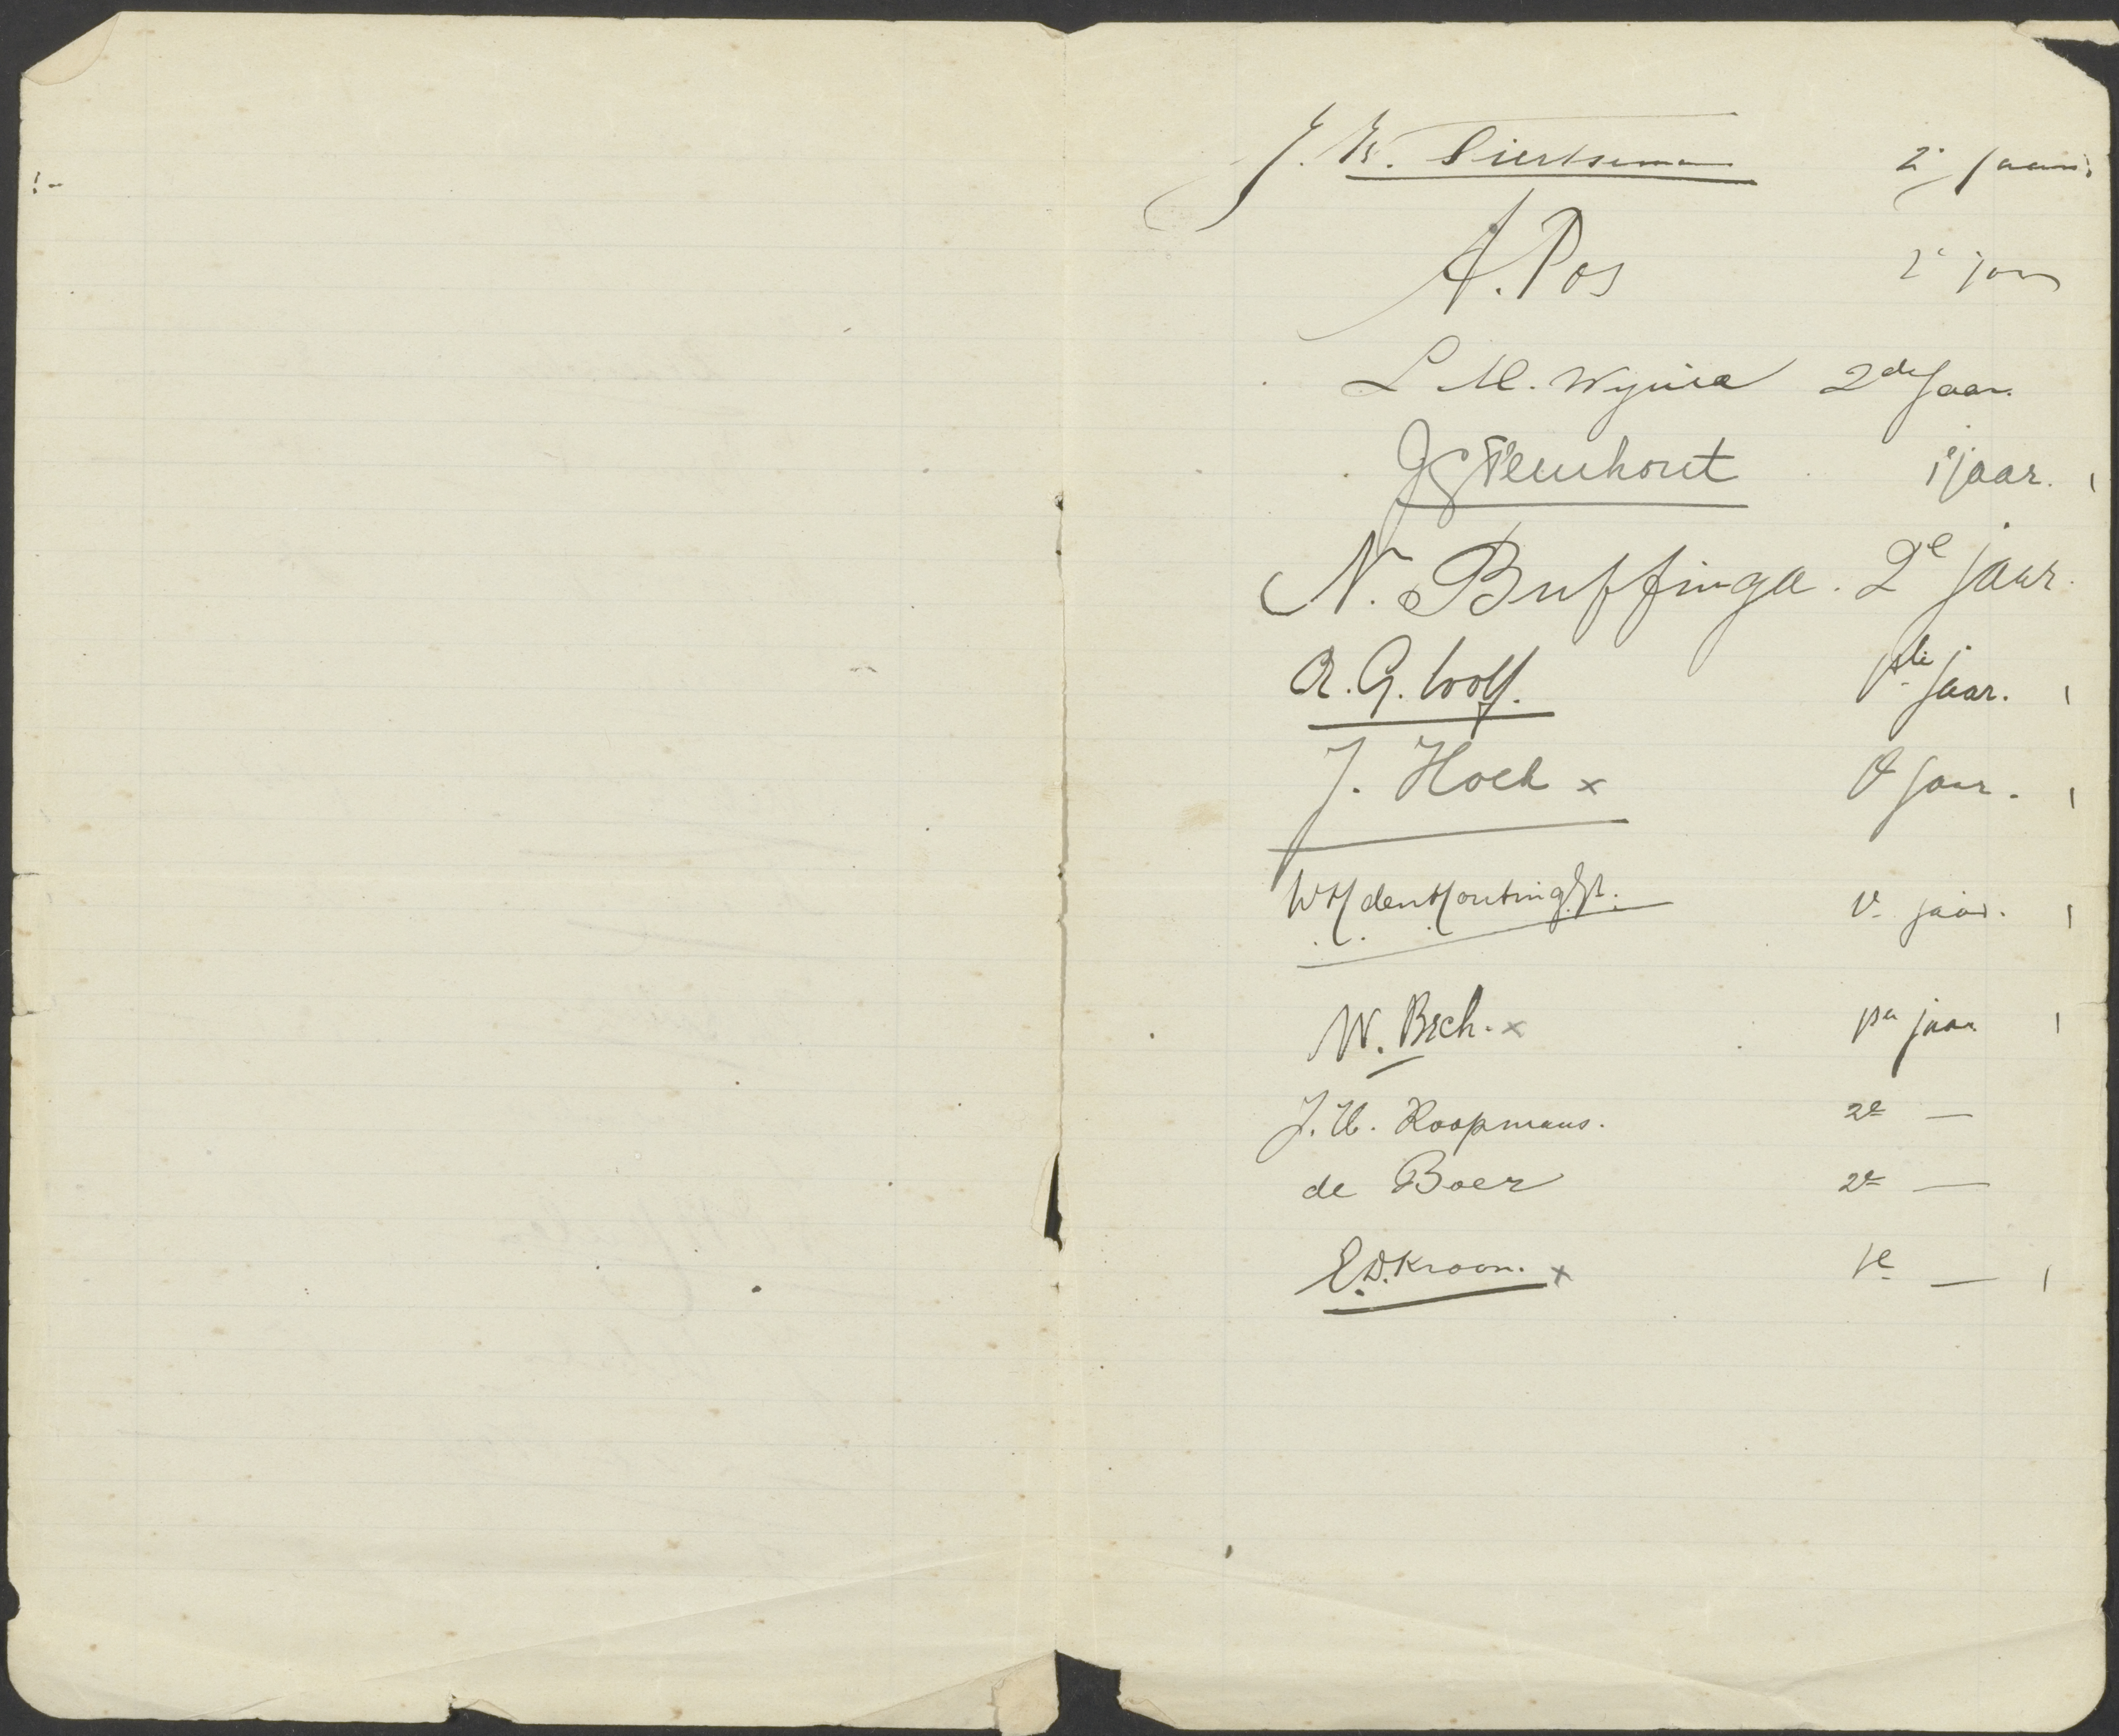 J. W. Siertsema 2e jaars
A. Pos 2e jaar
L M. Wynia 2de Jaar.
J Steenhout 1e jaar.
N. Buffinga. 2e jaar.
R. G. Wolf. 1ste jaar.
J. Hoek x 1e jaar.
W H den Houting Jr. 1e jaar.
W. x 1ste jaar
J. H. Koopmans. 2e —
de Boer 2e —
E. D. Kroon. x 1e —